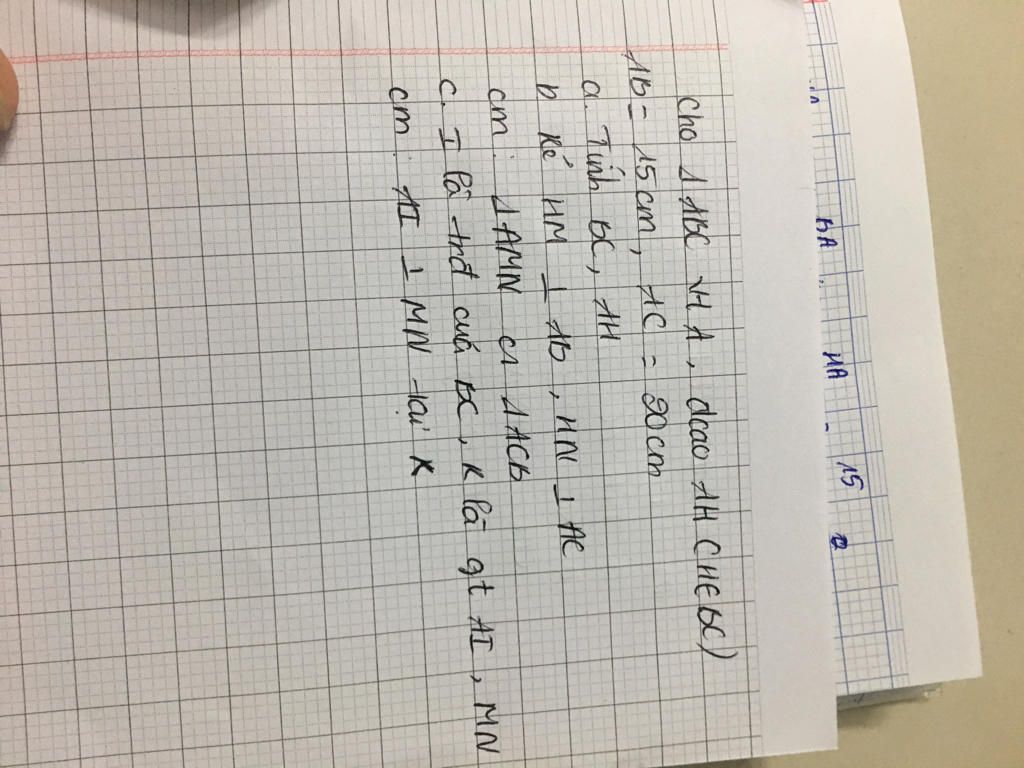 cho Δ ABC vH A, đcao AH (H∈BC)
AB = 15cm, AC = 20cm
a. Tính BC, AH
b kẻ HM ⊥ AB, HN ⊥ AC
cm: ΔAMN ∽ ΔACB
c. I là trđ của BC, K là gt AI, MN
cm: AI ⊥ MN tại K
BA, HA - 15 12